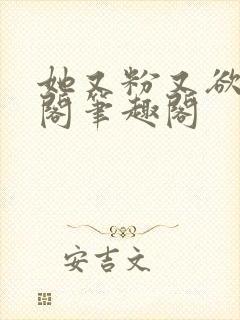 她又粉又欲
阁笔趣阁
安吉文